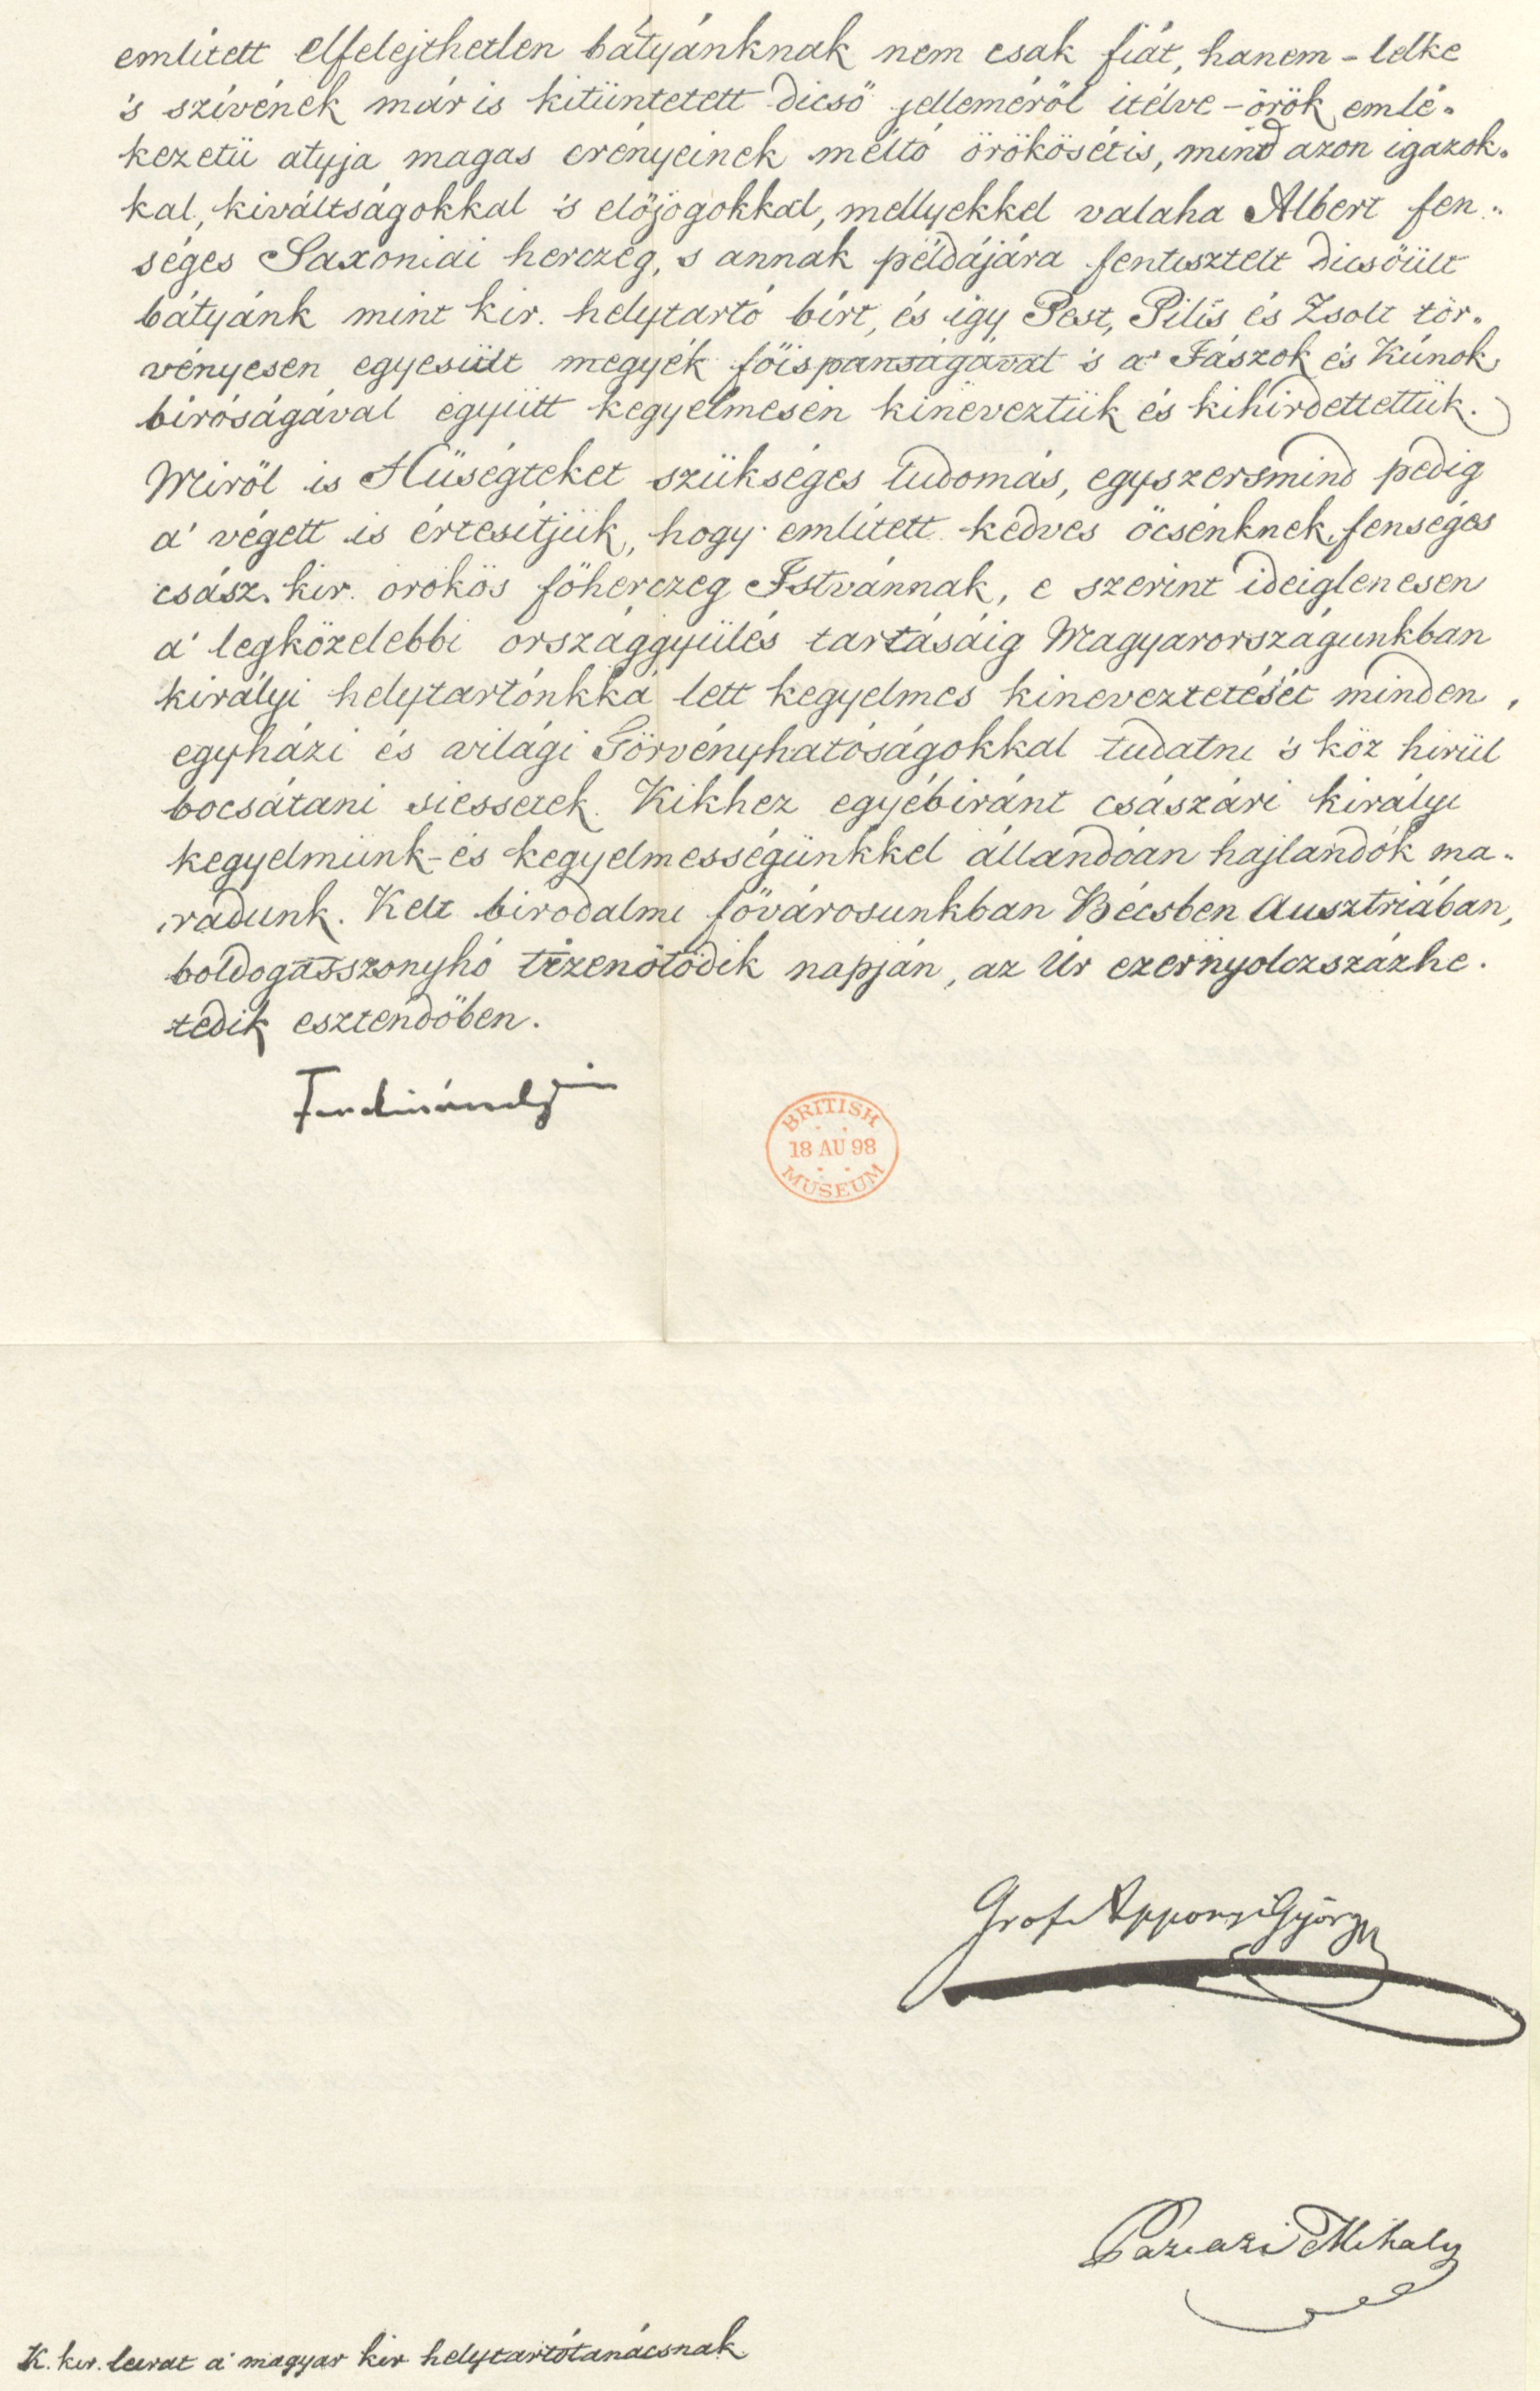 említett elfelejthetlen bátyánknak nem csak fiát, hanem - lelke
's szívének már is kitüntetett dicső jelleméről itélve - örök emlé-
kezetü atyja magas erényeinek méltó örökösét is, mind azon igazok-
kal, kiváltságokkal 's előjogokkal, mellyekkel valaha Albert fen-
séges Saxoniai herczeg, s annak példájára fentisztelt dicsőült
bátyánk mint kir. helytartó bírt, és igy Pest, Pilis és Zsolt tör-
vényesen egyesült megyék főispanságával 's a' Jászok és Kúnok
biróságával együtt kegyelmesen kineveztük és kihirdettettük.
Miről is Hüségteket szükséges tudomás, egyszersmind pedig
a' végett is értesítjük, hogy említett kedves öcsénknek fenséges
csász. kir. örökös főherczeg Istvánnak, e szerint ideiglenesen
a' legközelebbi országgyülés tartásáig Magyarországunkban
királyi helytartónkká lett kegyelmes kineveztetését minden
egyházi és világi Törvényhatóságokkal tudatni 's köz hirül
bocsátani siessetek. Kikhez egyébiránt császári királyi
kegyelmünk- és kegyelmességünkkel állandóan hajlandók ma-
radunk. Kelt birodalmi fővárosunkban Bécsben Ausztriában,
boldogasszonyhó tizenötödik napján, az Úr ezernyolczszázhe-
tedik esztendőben.
Ferdinánd
BRITISH
18 AU 98
MUSEUM
Grof Apponyi György
Mihaly
K. kir. leirat a' magyar kir helytartótanácsnak